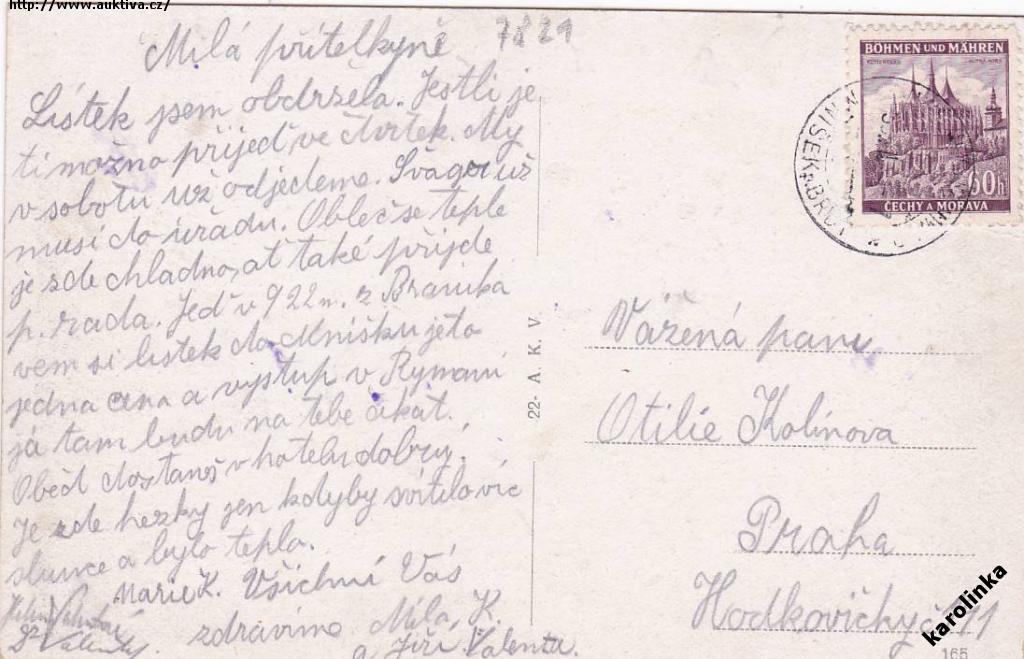 http://www.auktiva.cz/
7829
Milá přítelkyně
Lístek jsem obdržela. Jestli je
ti možno přijeď ve čtvrtek. My
v sobotu už odjedeme. Švagr už
musí do úřadu. Obleč se teple
je zde chladno, ať také přijde
p. rada. Jeď v 9 22 m. z Braníka
vem si lístek do Mníšku je to
jedna cena a vystup v Rymani
já tam budu na tebe čekat.
Oběd dostaneš v hotelu dobrý.
Je zde hezky jen kdyby svítilo víc
slunce a bylo teplo.
Marie K. Všichni Vás
zdravíme Míla K.
a Jiří Valenta.
BÖHMEN UND MÄHREN
60h
ČECHY A MORAVA
22- A. K. V
Vážená paní
Otilie Kolínova
Praha
Hodkovičky č 11
karolinka
165